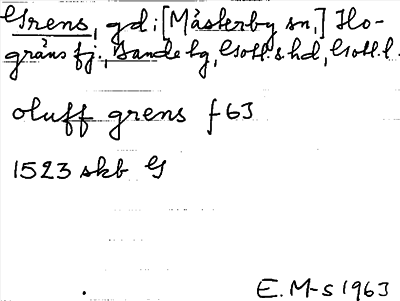 Grens, gd; [Mästerby sn,] Ho-
gräns fj., Bande hg, Gotl. s hd, Gotl. l.
oluff grens f 63
1523 skb G
E. M-s 1963